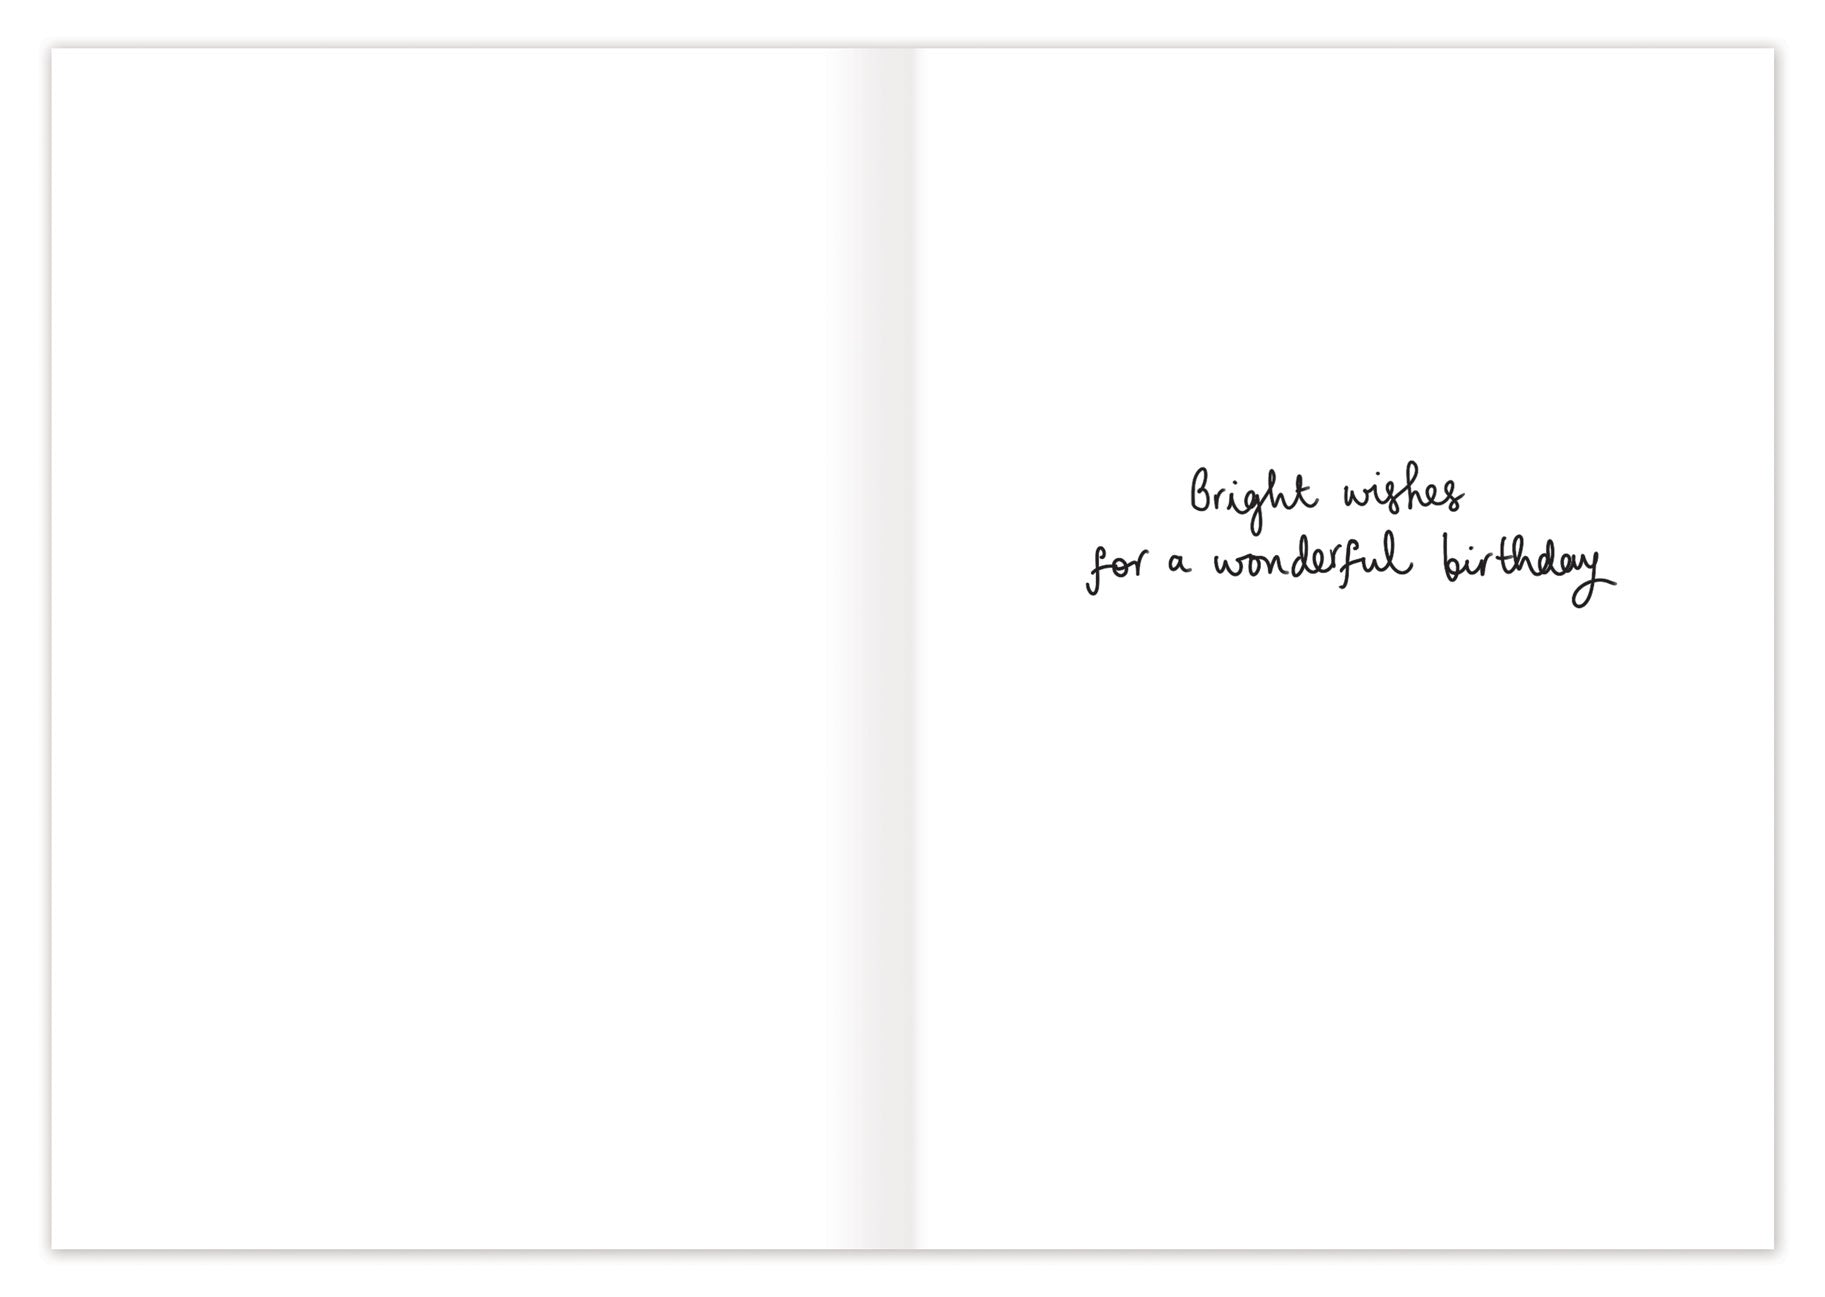 Bright wishes
for a wonderful birthday